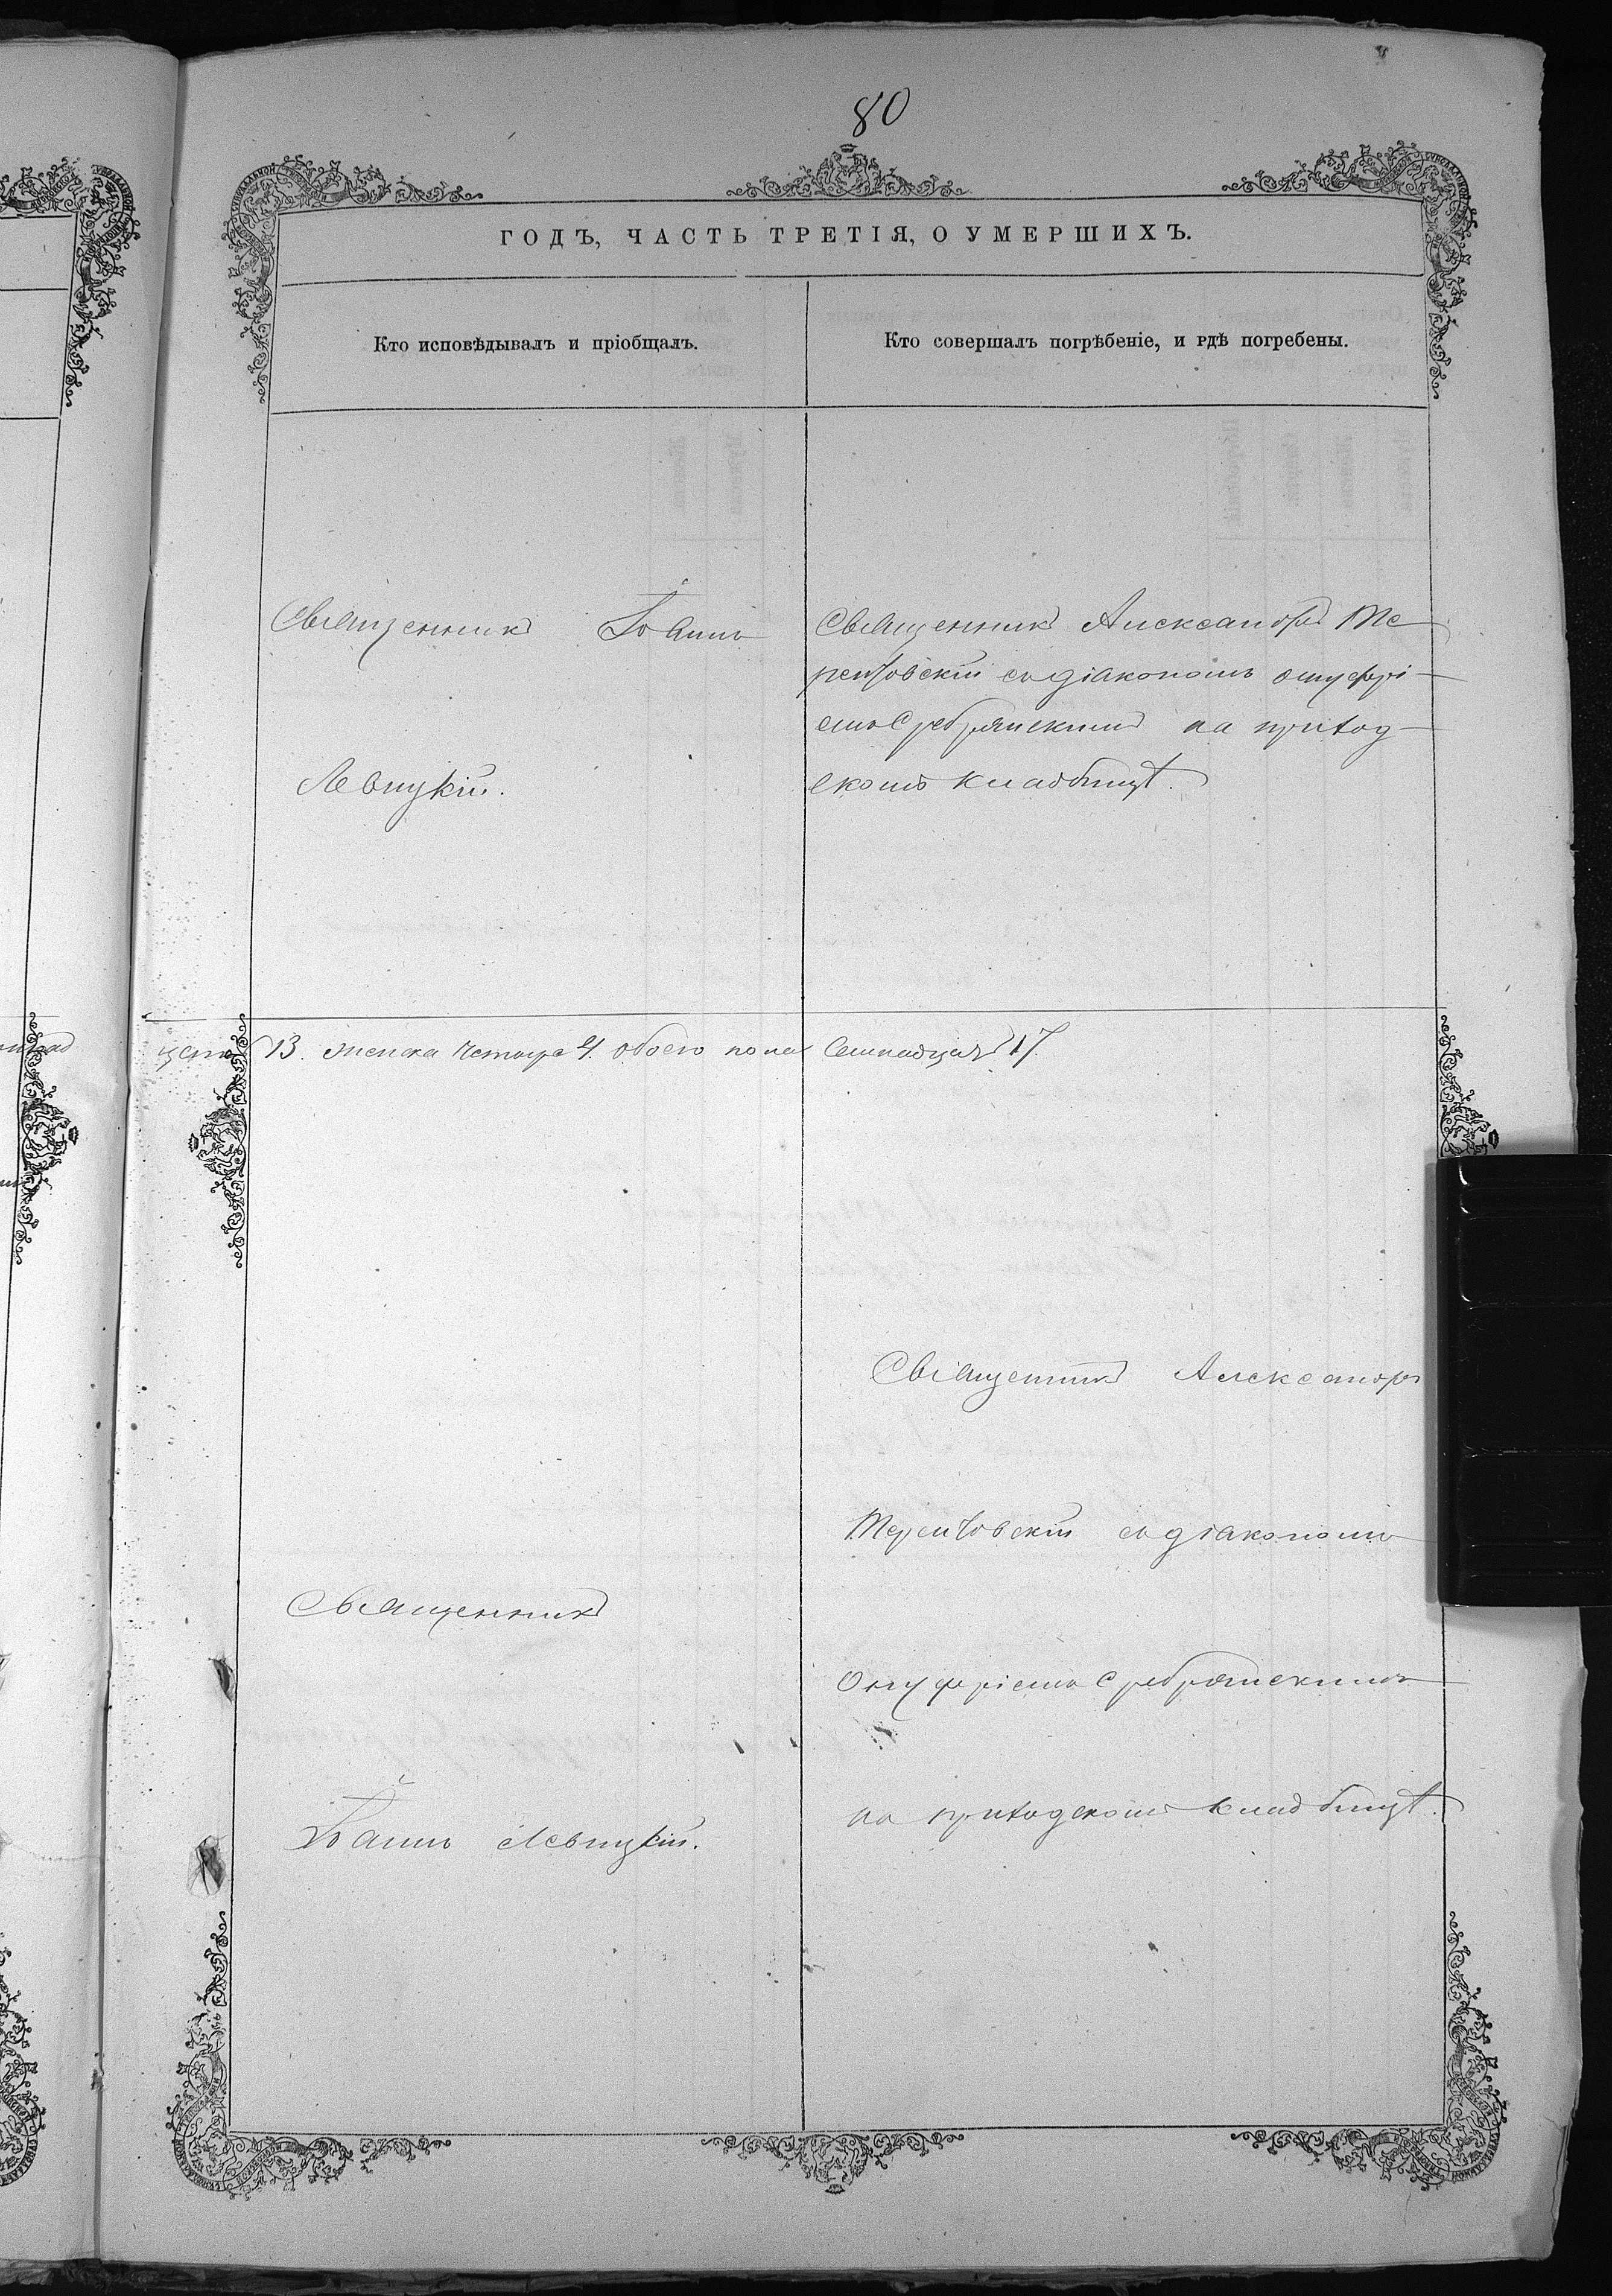 80
ГОДЪ, ЧАСТЬ ТРЕТІЯ, О УМЕРШИХЪ.
Кто исповѣдывалъ и пріобщалъ.
Кто совершалъ погрѣбеніе, и гдѣ погребены.
Священникъ Іоаннъ
Левицкій.
Священникъ Александръ Те-
рентовскій съ діакономъ Онуфрі-
емъ Сребрянскимъ на приход-
скомъ кладбищѣ.
цать 13. женска четыре 4. обоего пола Семнадцать 17.
Священникъ
Іоаннъ Левицкій.
Священникъ Александръ
съ діакономъ
Онуфріемъ Сребрянскимъ
на приходскомъ кладбищѣ.